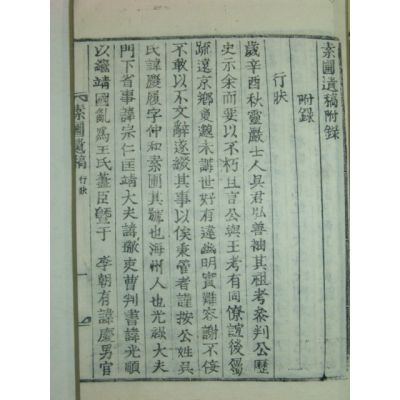 素圃遺稿附錄
附錄
行狀
歲辛酉秋靈巖士人吳君弘善袖其祖考參判公歷
史示余而要以不朽且言公與王考有同僚誼後屬
疏遠京鄉敻邈未講世好有違幽明實難容謝不佞
不敢以不文辭遂綴其事以俟秉管者謹按公姓吳
氏諱履字仲和素圃其號也海州人也光祿大夫
門下省事諱宗仁匡靖大夫諱 吏曹判書諱光順
以繼靖國亂爲王氏藎臣暨于 李朝有諱慶男官
素圃遺稿 行狀 一